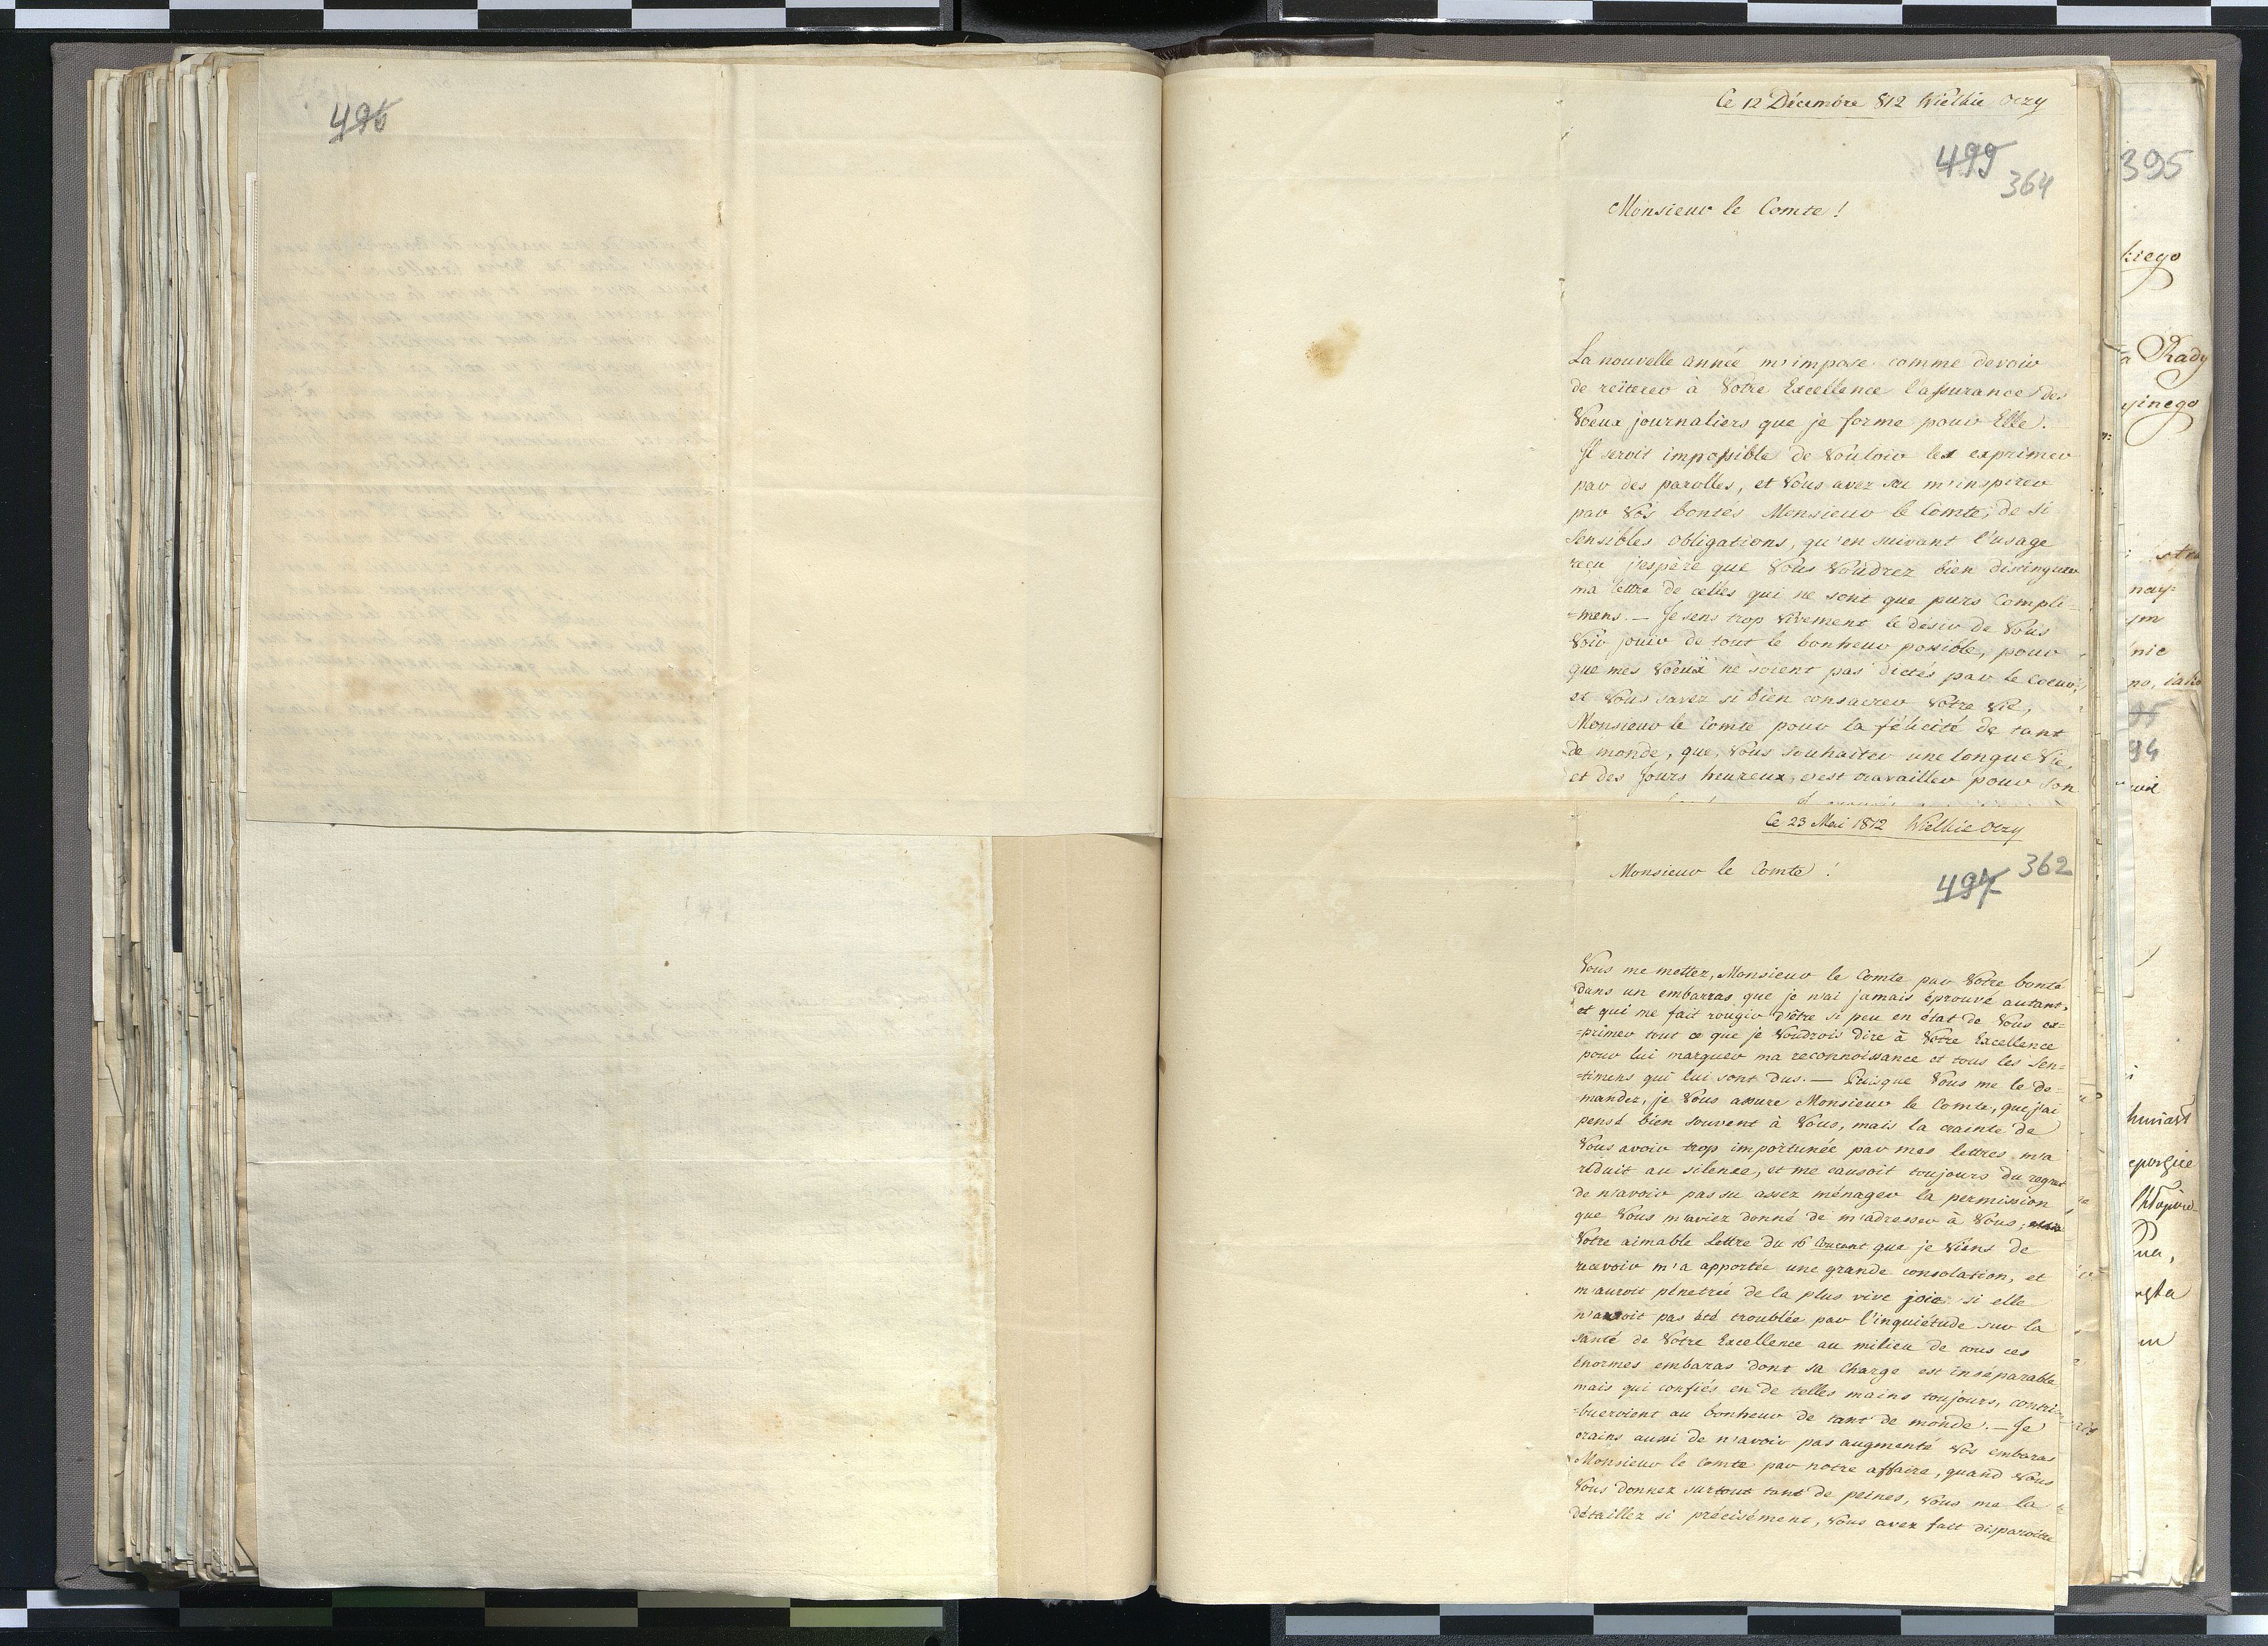 496
Ce 12 Décembre 812 Wielkie Oczy
499
364
Monsieur le Comte!
La nouvelle année m'impose comme devoir
de reïterer à Votre Excellence l'assurance des
Voeux journaliers que je forme pour Elle.
Il seroit impossible de Vouloir les exprimer
par des parolles, et Vous avez su m'inspirer
par Vos bontés Monsieur le Comte, de si
sensibles obligations, qu'en suivant l'usage
reçu j'espère que Vous Voudrez bien distinguer
ma lettre de celles qui ne sont que purs Compli=
=mens. — Je sens trop Vivement le désir de Vous
Voir jouir de tout le bonheur possible, pour
que mes Voeux ne soient pas dictés par le Coeur,
et Vous savez si bien consacrer Votre Vie,
Monsieur le Comte pour la félicité de tant
de monde, que Vous souhaiter une longue Vie,
et des Jours heureux, c'est travailler pour son
Ce 23 Mai 1812 Wielkie Oczy
Monsieur le Comte!
497
362
Vous me mettez, Monsieur le Comte par Votre bonté
dans un embarras que je n'ai jamais éprouvé autant,
et qui me fait rougir d'être si peu en état de Vous ex=
=primer tout ce que je Voudrois dire à Votre Excellence
pour lui marquer ma reconnoissance et tous les Sen=
=timens qui lui sont dus. — Puisque Vous me le de=
mandez, je Vous assure Monsieur le Comte, que j'ai
pensé bien souvent à Vous, mais la crainte de
Vous avoir trop importunée par mes lettres m'a
réduit au silence, et me causoit toujours du regret
de n'avoir pas su assez ménager la permission
que Vous m'aviez donné de m'adresser à Vous,
Votre aimable Lettre du 16 Courant que je Viens de
recevoir m'a apportée une grande consolation, et
m'auroit pénetrée de la plus vive joie si elle
n'auroit pas été troublée par l'inquiétude sur la
santé de Votre Excellence au milieu de tous ces
énormes embaras dont sa Charge est inséparable
mais qui confiés en de telles mains toujours, contri=
=bueroient au bonheur de tant de monde. — Je
crains aussi de n'avoir pas augmenté Vos embaras
Monsieur le Comte par notre affaire, quand Vous
Vous donnez surtout tant de peines, Vous me la
détaillez si précisément, Vous avez fait disparoitre
395
kiego
Rady
yinego
nay=
ym
nic
94